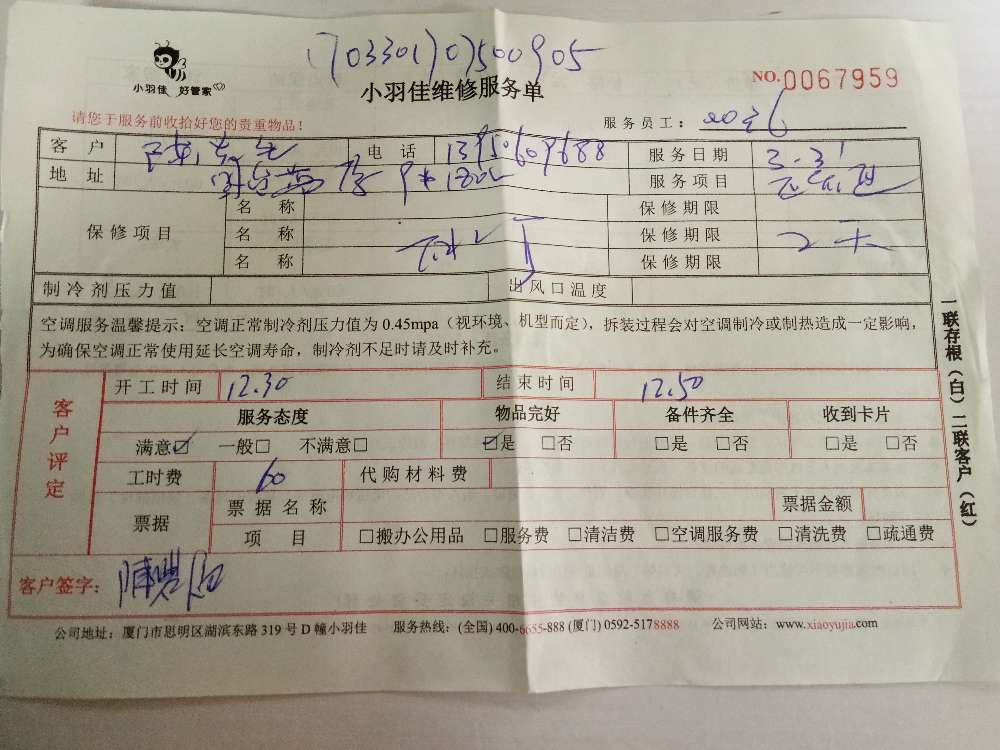 小羽佳 好管家
170330107500905
小羽佳维修服务单
NO.0067959
请您于服务前收拾好您的贵重物品!
服务员工:
客户 电话 13950609688 服务日期 3.31
地址 服务项目
保修项目 名称 保修期限
名称 保修期限
名称 保修期限
制冷剂压力值 出风口温度
空调服务温馨提示：空调正常制冷剂压力值为0.45mpa（视环境、机型而定），拆装过程会对空调制冷或制热造成一定影响，
为确保空调正常使用延长空调寿命，制冷剂不足时请及时补充。
客户评定
开工时间 12.30 结束时间 12.50
服务态度 物品完好 备件齐全 收到卡片
满意☑ 一般□ 不满意□ ☑是 □否 □是 □否 □是 □否
工时费 60 代购材料费
票据 票据名称 票据金额
项目 □搬办公用品 □服务费 □清洁费 □空调服务费 □清洗费 □疏通费
客户签字:
公司地址：厦门市思明区湖滨东路319号D幢小羽佳 服务热线：(全国) 400-6655-888 (厦门) 0592-5178888 公司网站：www.xiaoyujia.com
一联存根（白）二联客户（红）